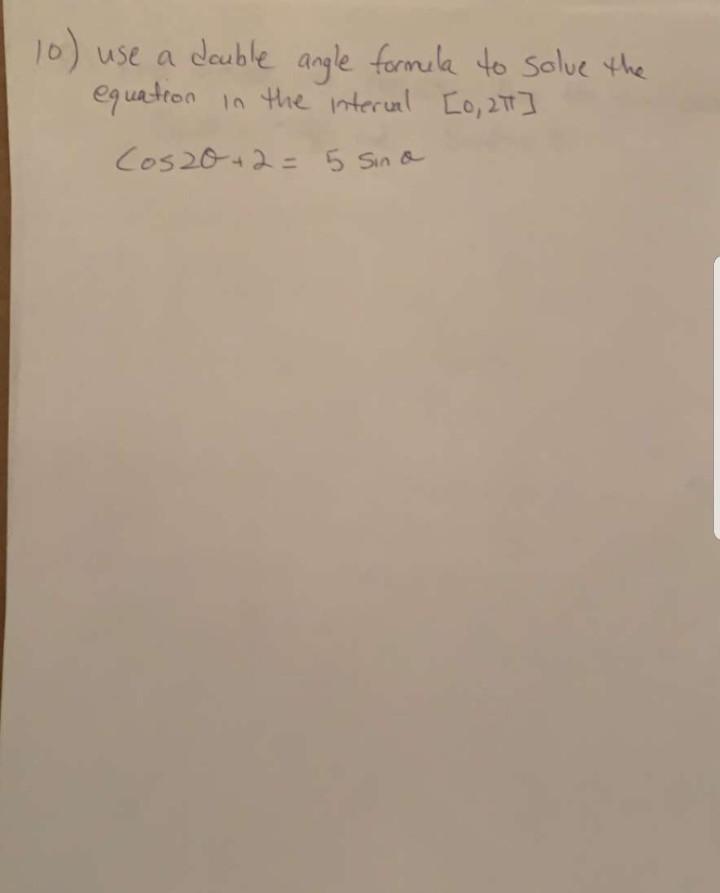 10) use a double angle formula to solve the
equation in the interval [0,2π]
Cos2θ+2= 5 Sin θ